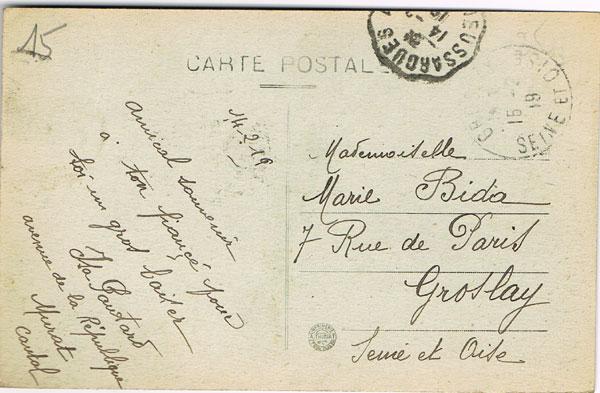 15
CARTE POSTALE
14.2.19
amical souvenir
à ton fiancé pour
toi un gros baiser
avenue de la République
Murat
Cantal
Mademoiselle
Marie Bida
7 Rue de Paris
Groslay
Seine et Oise
USSARGUES
14
15
19
SEINE ET OISE